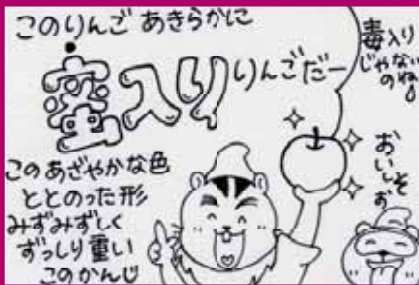 このりんご あきらかに
蜜入りりんごだー
毒入り
じゃない
のね
このあざやかな色
ととのった形
みずみずしく
ずっしり重い
このかんじ
おいしそお